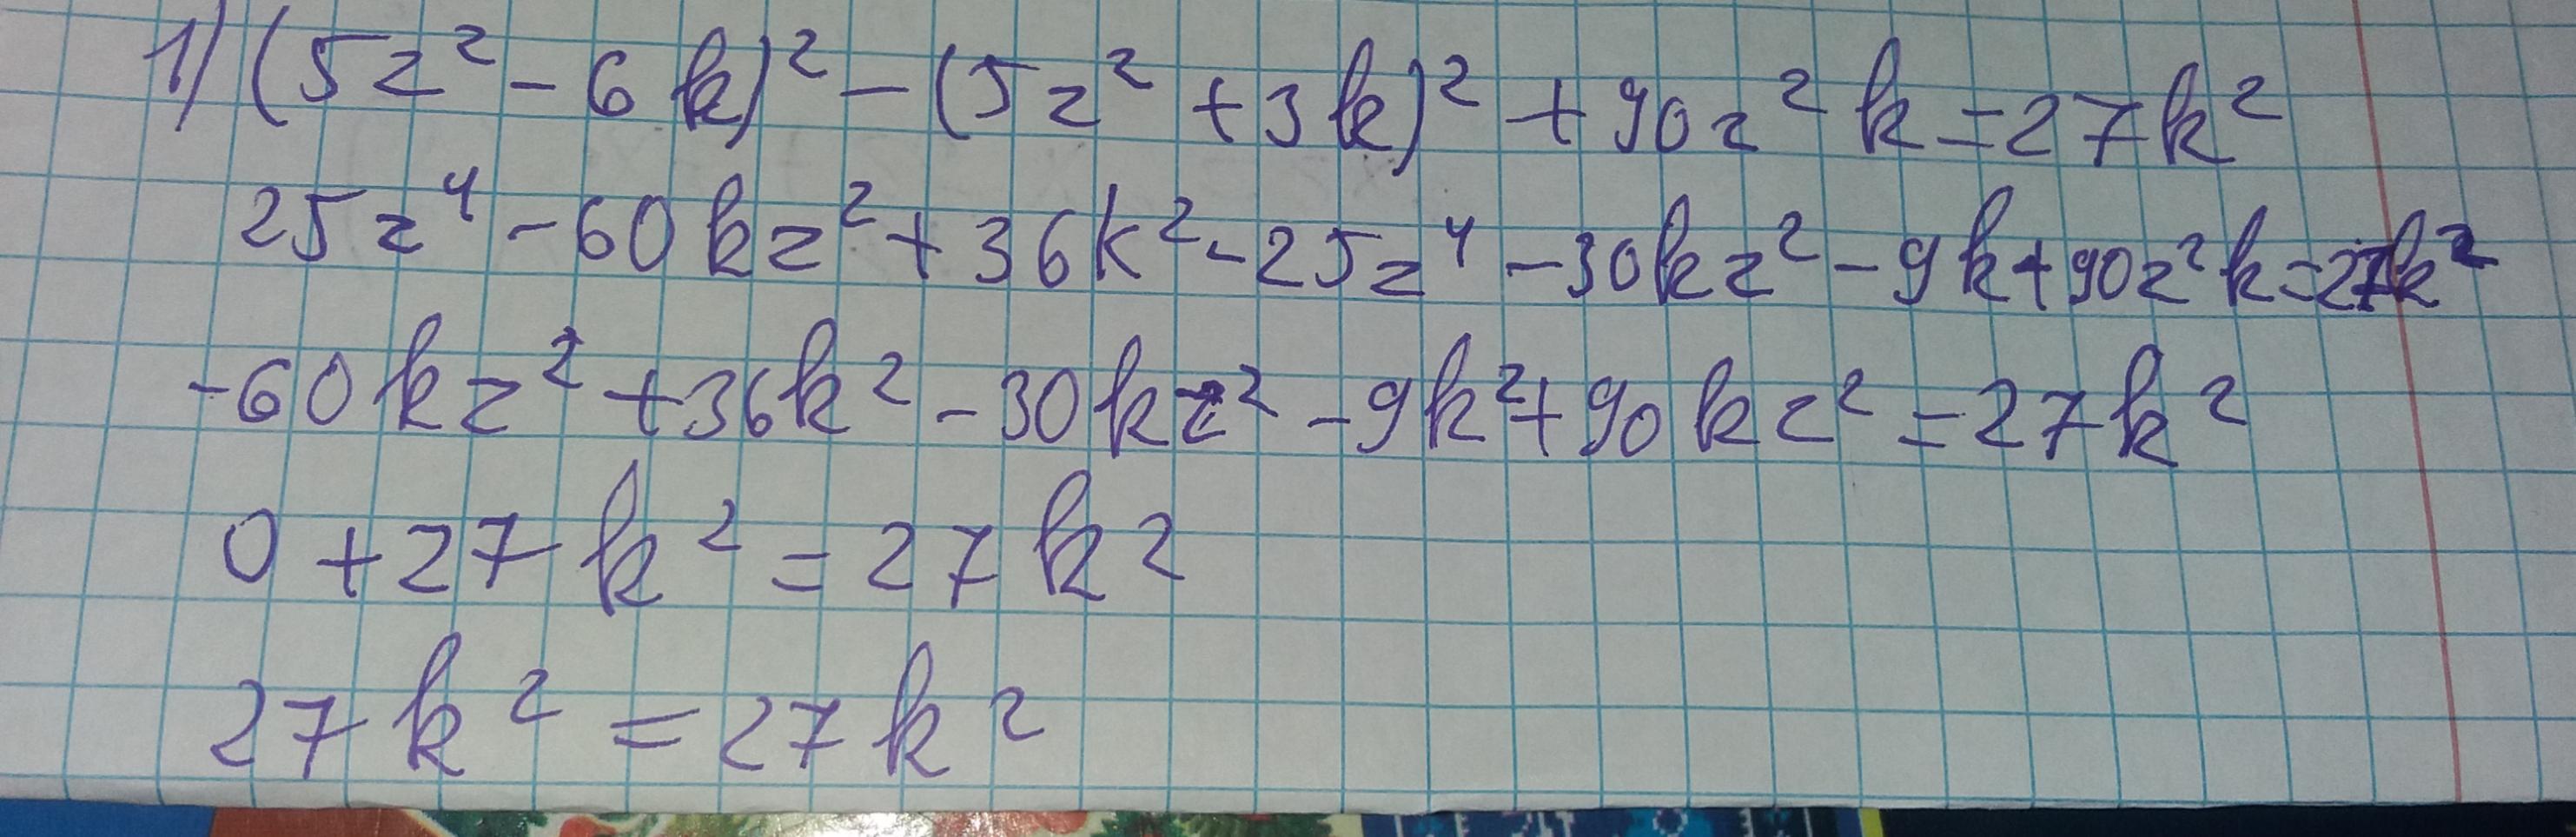 1) (5z² - 6k)² - (5z² + 3k)² + 90z²k = 27k²
25z⁴ - 60kz² + 36k² - 25z⁴ - 30kz² - 9k + 90z²k = 27k²
-60kz² + 36k² - 30kz² - 9k² + 90kz² = 27k²
0 + 27k² = 27k²
27k² = 27k²